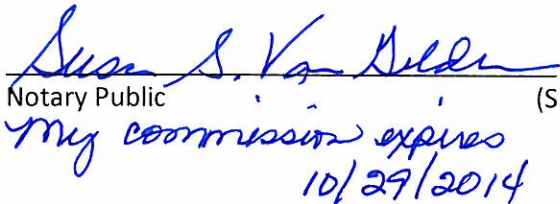 Susan S. Van Gelder
Notary Public (S
My commission expires
10/29/2014